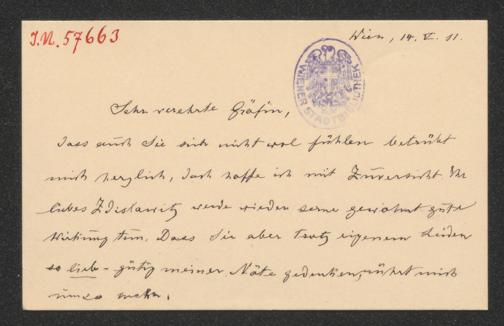 I.N. 57663
Wien, 14. V. 11.
WIENER STADTBIBLIOTHEK
Sehr verehrte Gräfin,
dass auch Sie sich nicht wol fühlen betrübt
mich herzlich, doch hoffe ich mit Zuversicht Ihr
liebes Zdislawitz werde wieder seine gewohnt gute
Wirkung tun. Dass Sie aber trotz eigenem Leiden
so lieb-gütig meiner Nöte gedenken, rührt mich
umso mehr.